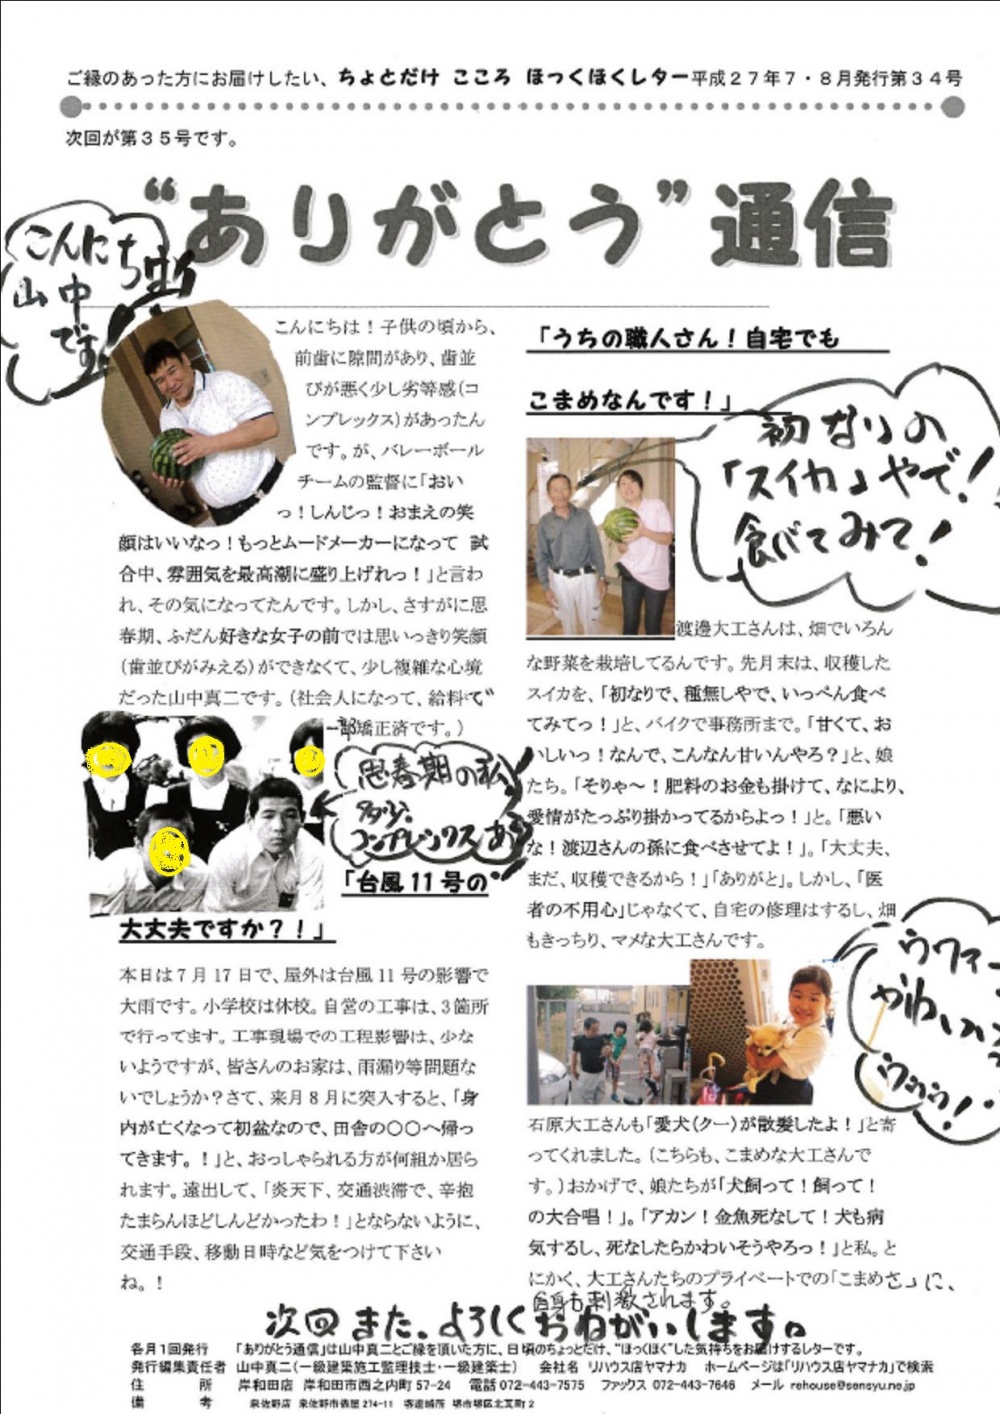 ご縁のあった方にお届けしたい、ちょとだけ こころ ほっくほくレター平成２７年７・８月発行第３４号
次回が第３５号です。
“ありがとう”通信
こんにちわ
山中
です!
こんにちは！子供の頃から、
前歯に隙間があり、歯並
びが悪く少し劣等感（コ
ンプレックス）があったん
です。が、バレーボール
チームの監督に「おい
っ！しんじっ！おまえの笑
顔はいいなっ！もっとムードメーカーになって 試
合中、雰囲気を最高潮に盛り上げれっ！」と言わ
れ、その気になってたんです。しかし、さすがに思
春期、ふだん好きな女子の前では思いっきり笑顔
（歯並びがみえる）ができなくて、少し複雑な心境
だった山中真二です。（社会人になって、給料で
一部矯正済です。）
思春期の私
コンプレックス あり
「台風11号の
大丈夫ですか？！」
本日は７月17日で、屋外は台風11号の影響で
大雨です。小学校は休校。自営の工事は、3箇所
で行ってます。工事現場での工程影響は、少な
いようですが、皆さんのお家は、雨漏り等問題な
いでしょうか？さて、来月８月に突入すると、「身
内が亡くなって初盆なので、田舎の〇〇へ帰っ
てきます。！」と、おっしゃられる方が何組か居ら
れます。遠出して、「炎天下、交通渋滞で、辛抱
たまらんほどしんどかったわ！」とならないように、
交通手段、移動日時など気をつけて下さい
ね。！
「うちの職人さん！自宅でも
こまめなんです！」
初なりの
「スイカ」やで!
食べてみて!
渡邊大工さんは、畑でいろん
な野菜を栽培してるんです。先月末は、収穫した
スイカを、「初なりで、種無しやで、いっぺん食べ
てみてっ！」と、バイクで事務所まで。「甘くて、お
いしいっ！なんで、こんなん甘いんやろ？」と、娘
たち。「そりゃ～！肥料のお金も掛けて、なにより、
愛情がたっぷり掛かってるからよっ！」と。「悪い
な！渡辺さんの孫に食べさせてよ！」。「大丈夫、
まだ、収穫できるから！」「ありがと」。しかし、「医
者の不用心」じゃなくて、自宅の修理はするし、畑
もきっちり、マメな大工さんです。
ウワァー
かわいい
石原大工さんも「愛犬（クー）が散髪したよ！」と寄
ってくれました。（こちらも、こまめな大工さんで
す。）おかげで、娘たちが「犬飼って！飼って！
の大合唱！」。「アカン！金魚死なして！犬も病
気するし、死なしたらかわいそうやろっ！」と私。と
にかく、大工さんたちのプライベートでの「こまめさ」に、
自身も刺激されます。
次回また、よろしくおねがいします。
各月１回発行　「ありがとう通信」は山中真二とご縁を頂いた方に、日頃のちょっとだけ、“ほっくほく”した気持ちをお届けするレターです。
発行編集責任者　山中真二（一級建築施工監理技士・一級建築士）　会社名　リハウス店ヤマナカ　ホームページは「リハウス店ヤマナカ」で検索
住　所　岸和田店　岸和田市西之内町 57-24　電話 072-443-7575　ファックス 072-443-7646　メール rehouse@sensyu.ne.jp
備　考　泉佐野店　泉佐野市俵屋 274-11　堺連絡所　堺市堺区北瓦町 2